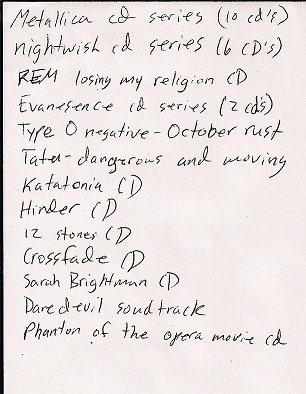 Metallica cd series (10 cd's)
nightwish cd series (6 CD's)
REM losing my religion CD
Evanesence cd series (2 cd's)
Type O negative - October rust
Tatu - dangerous and moving
Katatonia CD
Hinder CD
12 stones CD
Crossfade CD
Sarah Brightman CD
Daredevil soudtrack
Phanton of the opera movie cd